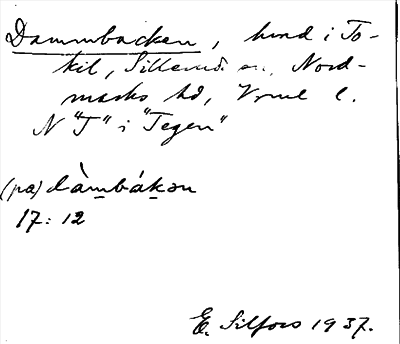 Dammbacken, hmd i To-
kil, Sillerud sn, Nord-
marks hd, Vrml l.
N "T" i "Tegen"
(pa) dàmbákən
17:12
E. Silfors 1937.